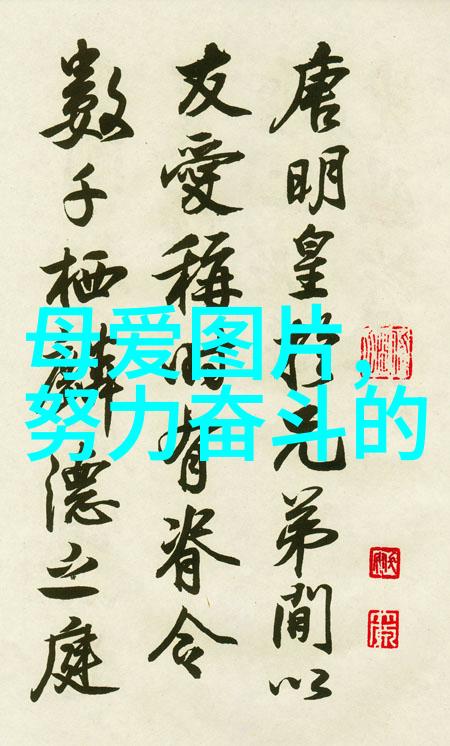 母爱图片，
努力奋斗的
唐明皇於兄弟間以
友愛稱時有脊令
數千栖麟德之庭